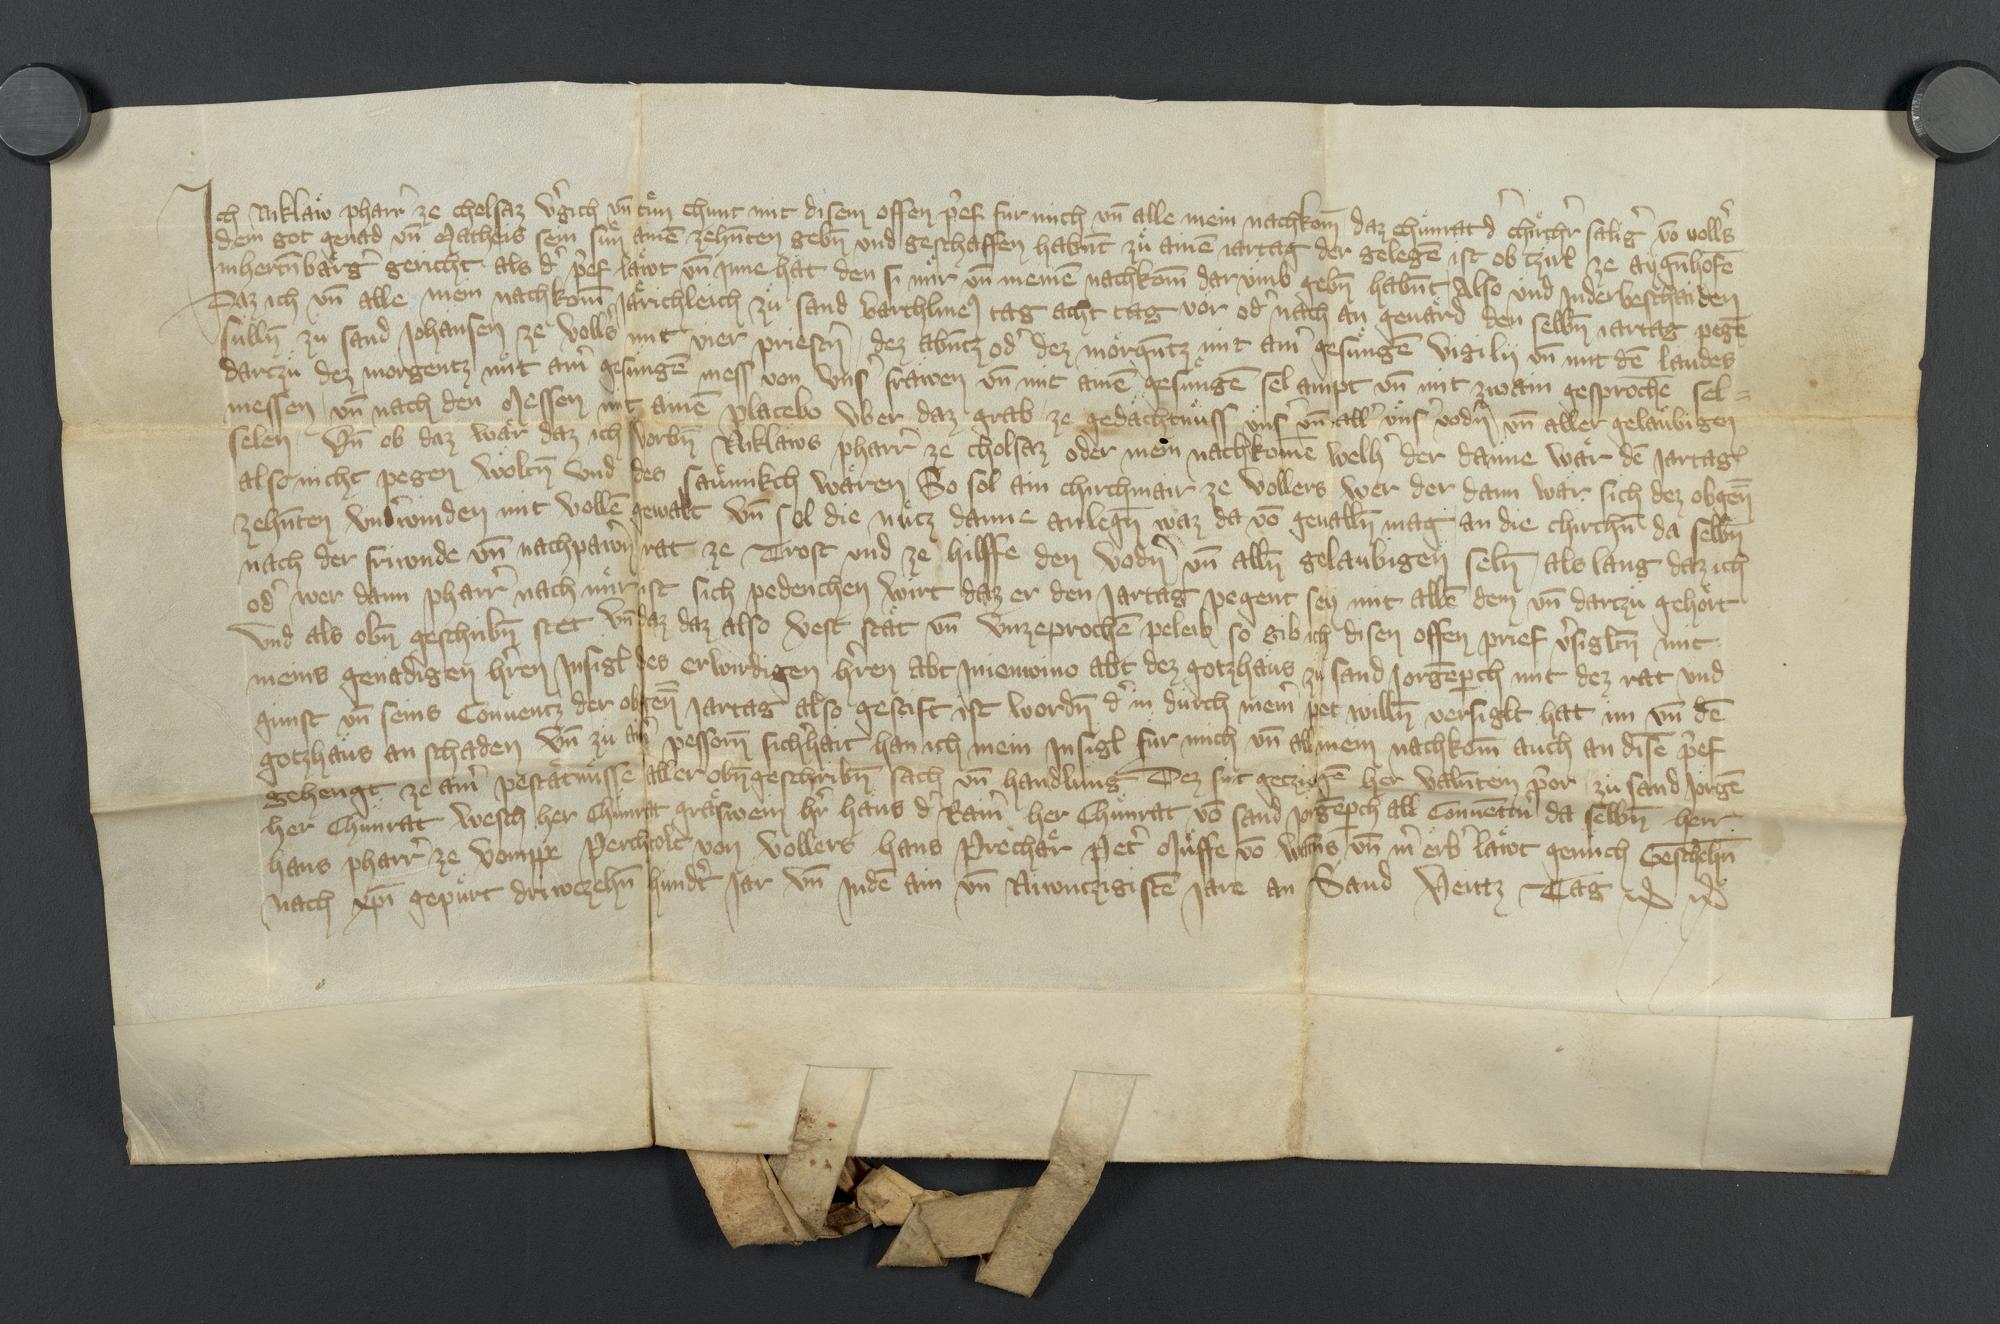 Ich Niklaw pharr̉ ze cholsaz v̉gich vn̄ tůn chunt mit disem offen p̉ef fur mich vn̄ alle mein nachkom̄ daz chůnrat d̉ chirchr̉ salig̉ vō voll̉s
dem got genad vn̄ Matheis sein sůn ainē zehn̄ten gebn̄ vnd geschaffen habn̄t zů ainē iartag der gelegē ist ob Czirl ze aygn̄hofē
in hertn̄bårg̉ gericht als d̉ p̉ef låwt vn̄ Inne hat den si mir vn̄ meinē nachkom̄ dar vmb gebn̄ habn̄t Also vnd Inder beschaiden
Daz ich vn̄ alle mein nachkom̄ Iårichleich zů sand barthlmes tag acht tag vor od̉ nåch an genård den selbn̄ iartag pegē
sulln̄ zu sand Johansen ze voll̉s mit vier priest̉n dez abn̄tz od̉ dez morgn̄tz mit aīm̉ gesungē vigilij vn̄ mit dē laudes
dartzů dez morgentz mit aīm̉ gesungē mess von vns̉ frawen vn̄ mit ainē gesungē sel ampt vn̄ mit zwain gesprochē sel=
messen vn̄ nach den Messen mit ainē placebo vber daz grab ze gedåchtnůss vns̉ vn̄ all̉ vns̉ vodn̉ vn̄ aller gelaubigen
selen Vn̄ ob daz wår daz ich vorbn̄ Niklaws pharr̉ ze cholsaz oder mein nachkomē welh̉ der danne wår dē Jartag
also nicht pegen wolt̄n vnd des saůmikch wåren So sol ain chirchmair ze vollers wer der dann wår sich dez obgen̄
zehn̄ten vnd̉winden mit vollē gewalt Vn̄ sol die nůtz danne anlegn̄ waz da vō geualln̄ mag an die chirchn̄ da selbn̄
nach der friwnde vn̄ nachpawr̄n rat ze Trost vnd ze hilffe den vodn̉ vn̄ alln̄ gelaubigen seln̄ als lang daz ich
od̉ wer dann pharr̉ nach mir ist sich pedenchen wirt daz er den Jartag pegent sey mit allē dem vn̄ dartzů gehôrt
Vnd als obn̄ geschribn̄ stet Vn̄ daz daz also vest ståt vn̄ vnzeprochē peleib so gib ich disen offen prief v̉sigltn̄ mit
meins genådigen hr̄en Insigl des erwirdigen hr̄en abt Inienwino abt dez gotzhaus zu sand Jorgēperch mit dez rat vnd
gunst vn̄ seins Conuentz der obgen̄ Jartag also gestift ist wordn̄ d̉ in durch mein̉ pet willn̄ versiglt hat im vn̄ dē
gotzhaus an schaden Vn̄ zu aīm̉ pessorn̄ sich̉hait han ich mein Insigl fur mich vn̄ all mein nachkom̄ auch an disē p̉ef
gehengt ze aīm̉ peståtnůsse aller obn̄geschribn̄ sach vn̄ handlung Dez sint getzugē her valn̄tein p̉or zu sand Jorgē
her Chunrat wesch her Chunrat gråswein hr̉ hans d̉ Rain̉ her Chůnrat vō sand Jorgēperch all Conuēttn̉ da selbn̄ herr
hans pharr̉ ze vompe Perchtolt von Vollers hans Prechår Pet̉ Můffe vō Watns vn̄ m̉ erb̉ låwt genůch Geschehn̄
nach xp̄i gepůrt driwczehn̄ hundt̉ Jar vn̄ Indē ain vn̄ Niwntzigistē Jare an Sand Veittz Tag